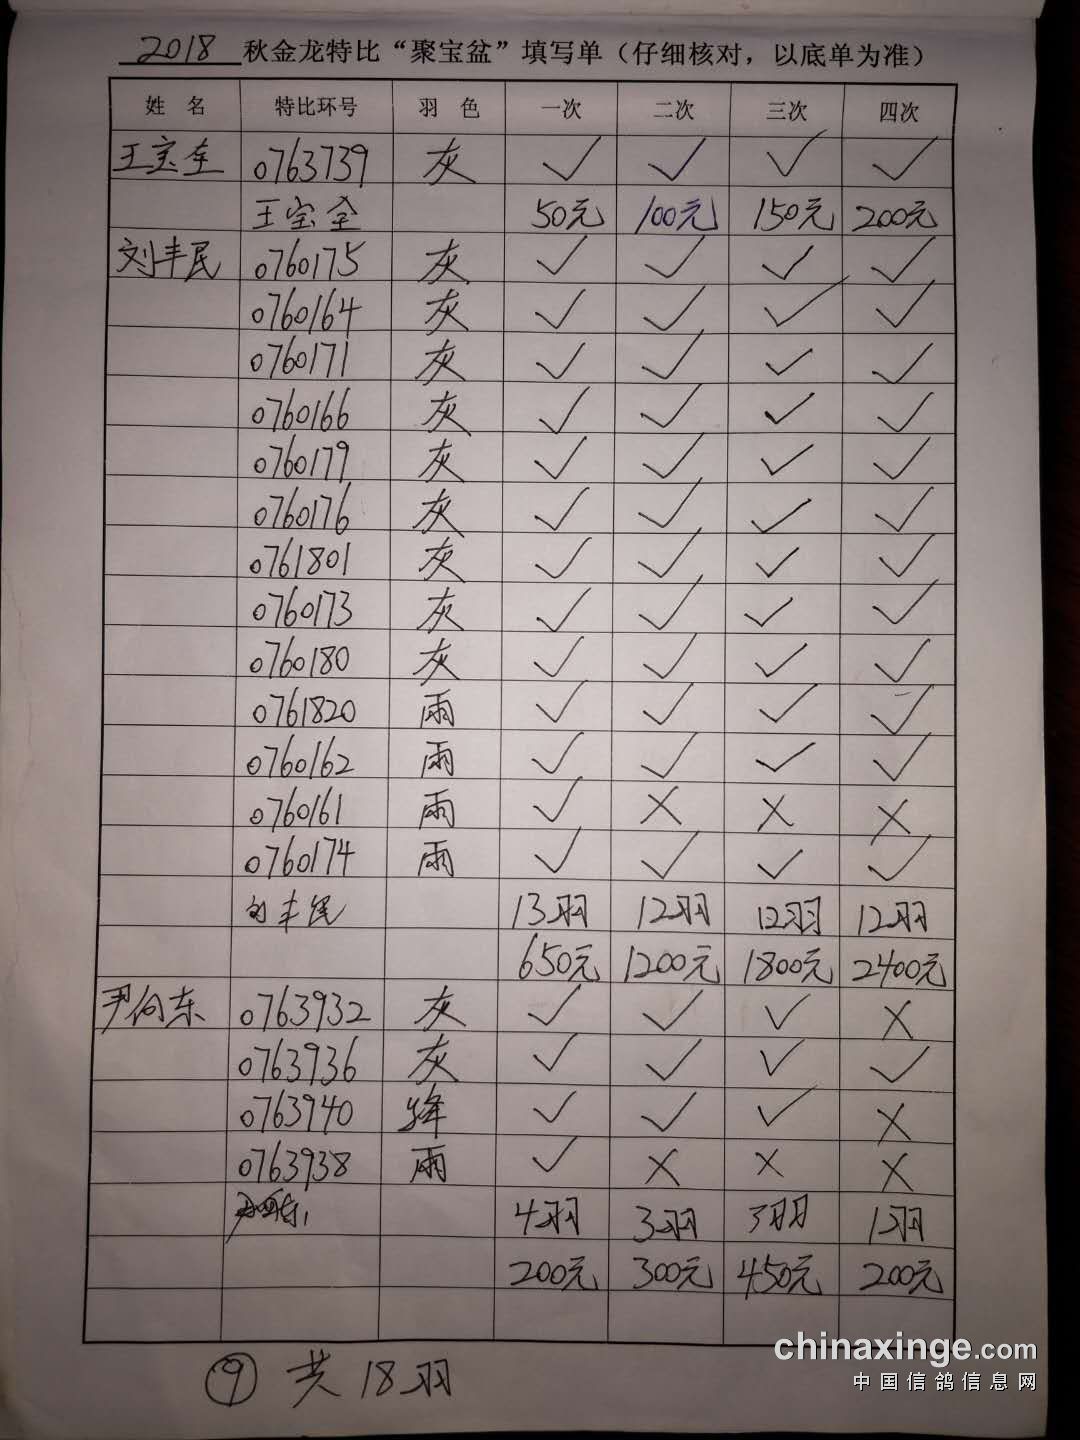 2018 秋金龙特比“聚宝盆”填写单（仔细核对，以底单为准）
姓 名 特比环号 羽 色 一次 二次 三次 四次
王宝全 0763739 灰 ✓ ✓ ✓ ✓
王宝全 50元 100元 150元 200元
刘丰民 0760175 灰 ✓ ✓ ✓ ✓
0760164 灰 ✓ ✓ ✓ ✓
0760171 灰 ✓ ✓ ✓ ✓
0760166 灰 ✓ ✓ ✓ ✓
0760179 灰 ✓ ✓ ✓ ✓
0760176 灰 ✓ ✓ ✓ ✓
0761801 灰 ✓ ✓ ✓ ✓
0760173 灰 ✓ ✓ ✓ ✓
0760180 灰 ✓ ✓ ✓ ✓
0761820 雨 ✓ ✓ ✓ ✓
0760162 雨 ✓ ✓ ✓ ✓
0760161 雨 ✓ × × ×
0760174 雨 ✓ ✓ ✓ ✓
刘丰民 13羽 12羽 12羽 12羽
650元 1200元 1800元 2400元
尹向东 0763932 灰 ✓ ✓ ✓ ×
0763936 灰 ✓ ✓ ✓ ✓
0763940 绛 ✓ ✓ ✓ ×
0763938 雨 ✓ × × ×
4羽 3羽 3羽 1羽
200元 300元 450元 200元
⑨ 共18羽
chinaxinge.com
中国信鸽信息网